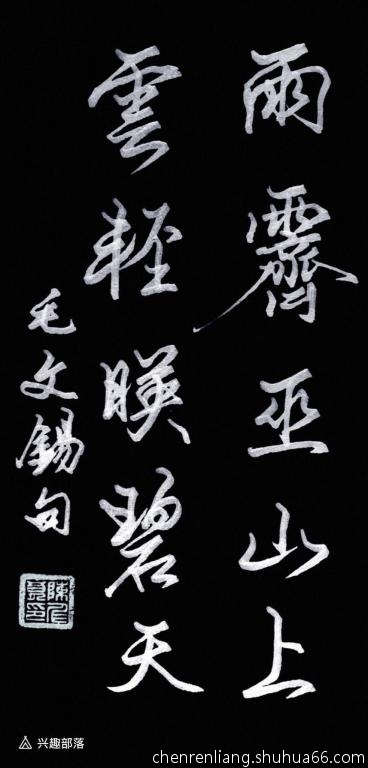 雨霽巫山上
雲輕暎碧天
毛文錫句
兴趣部落
chenrenliang.shuhua66.com